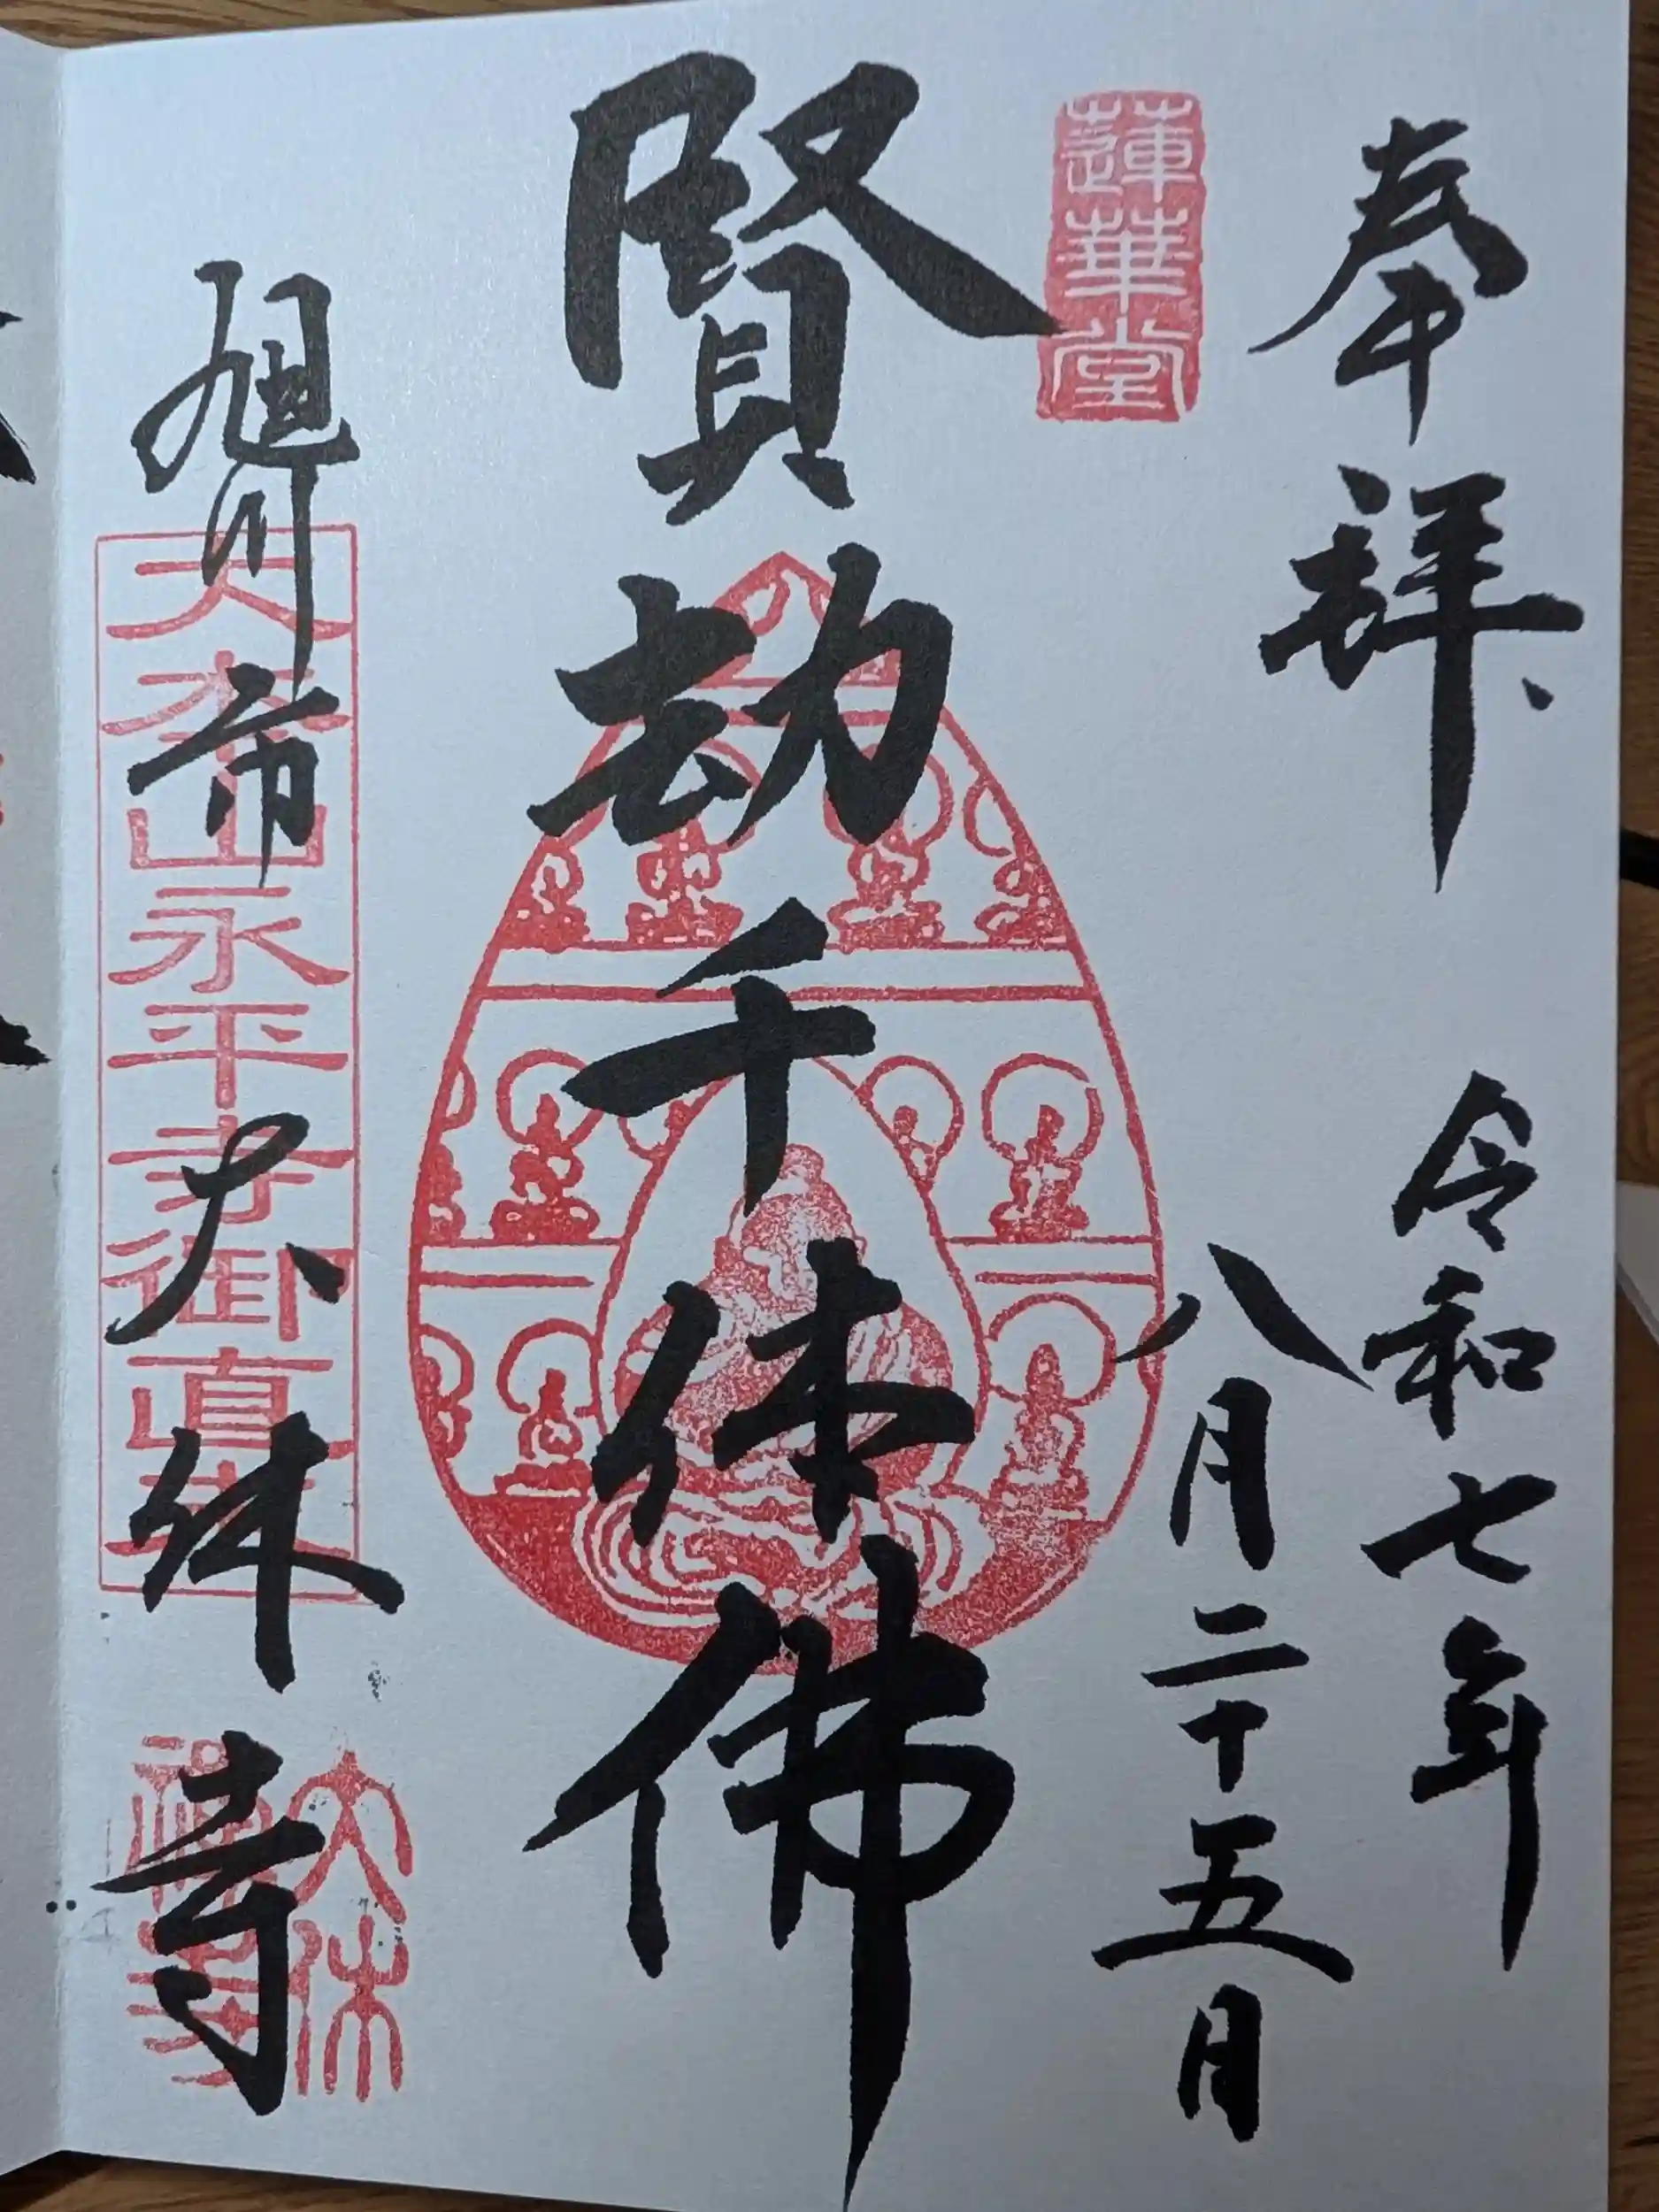 奉拝
令和七年
八月二十五日
蓮華堂
賢劫千体佛
旭川市
大休寺
大本山永平寺御直末
大休
禅寺